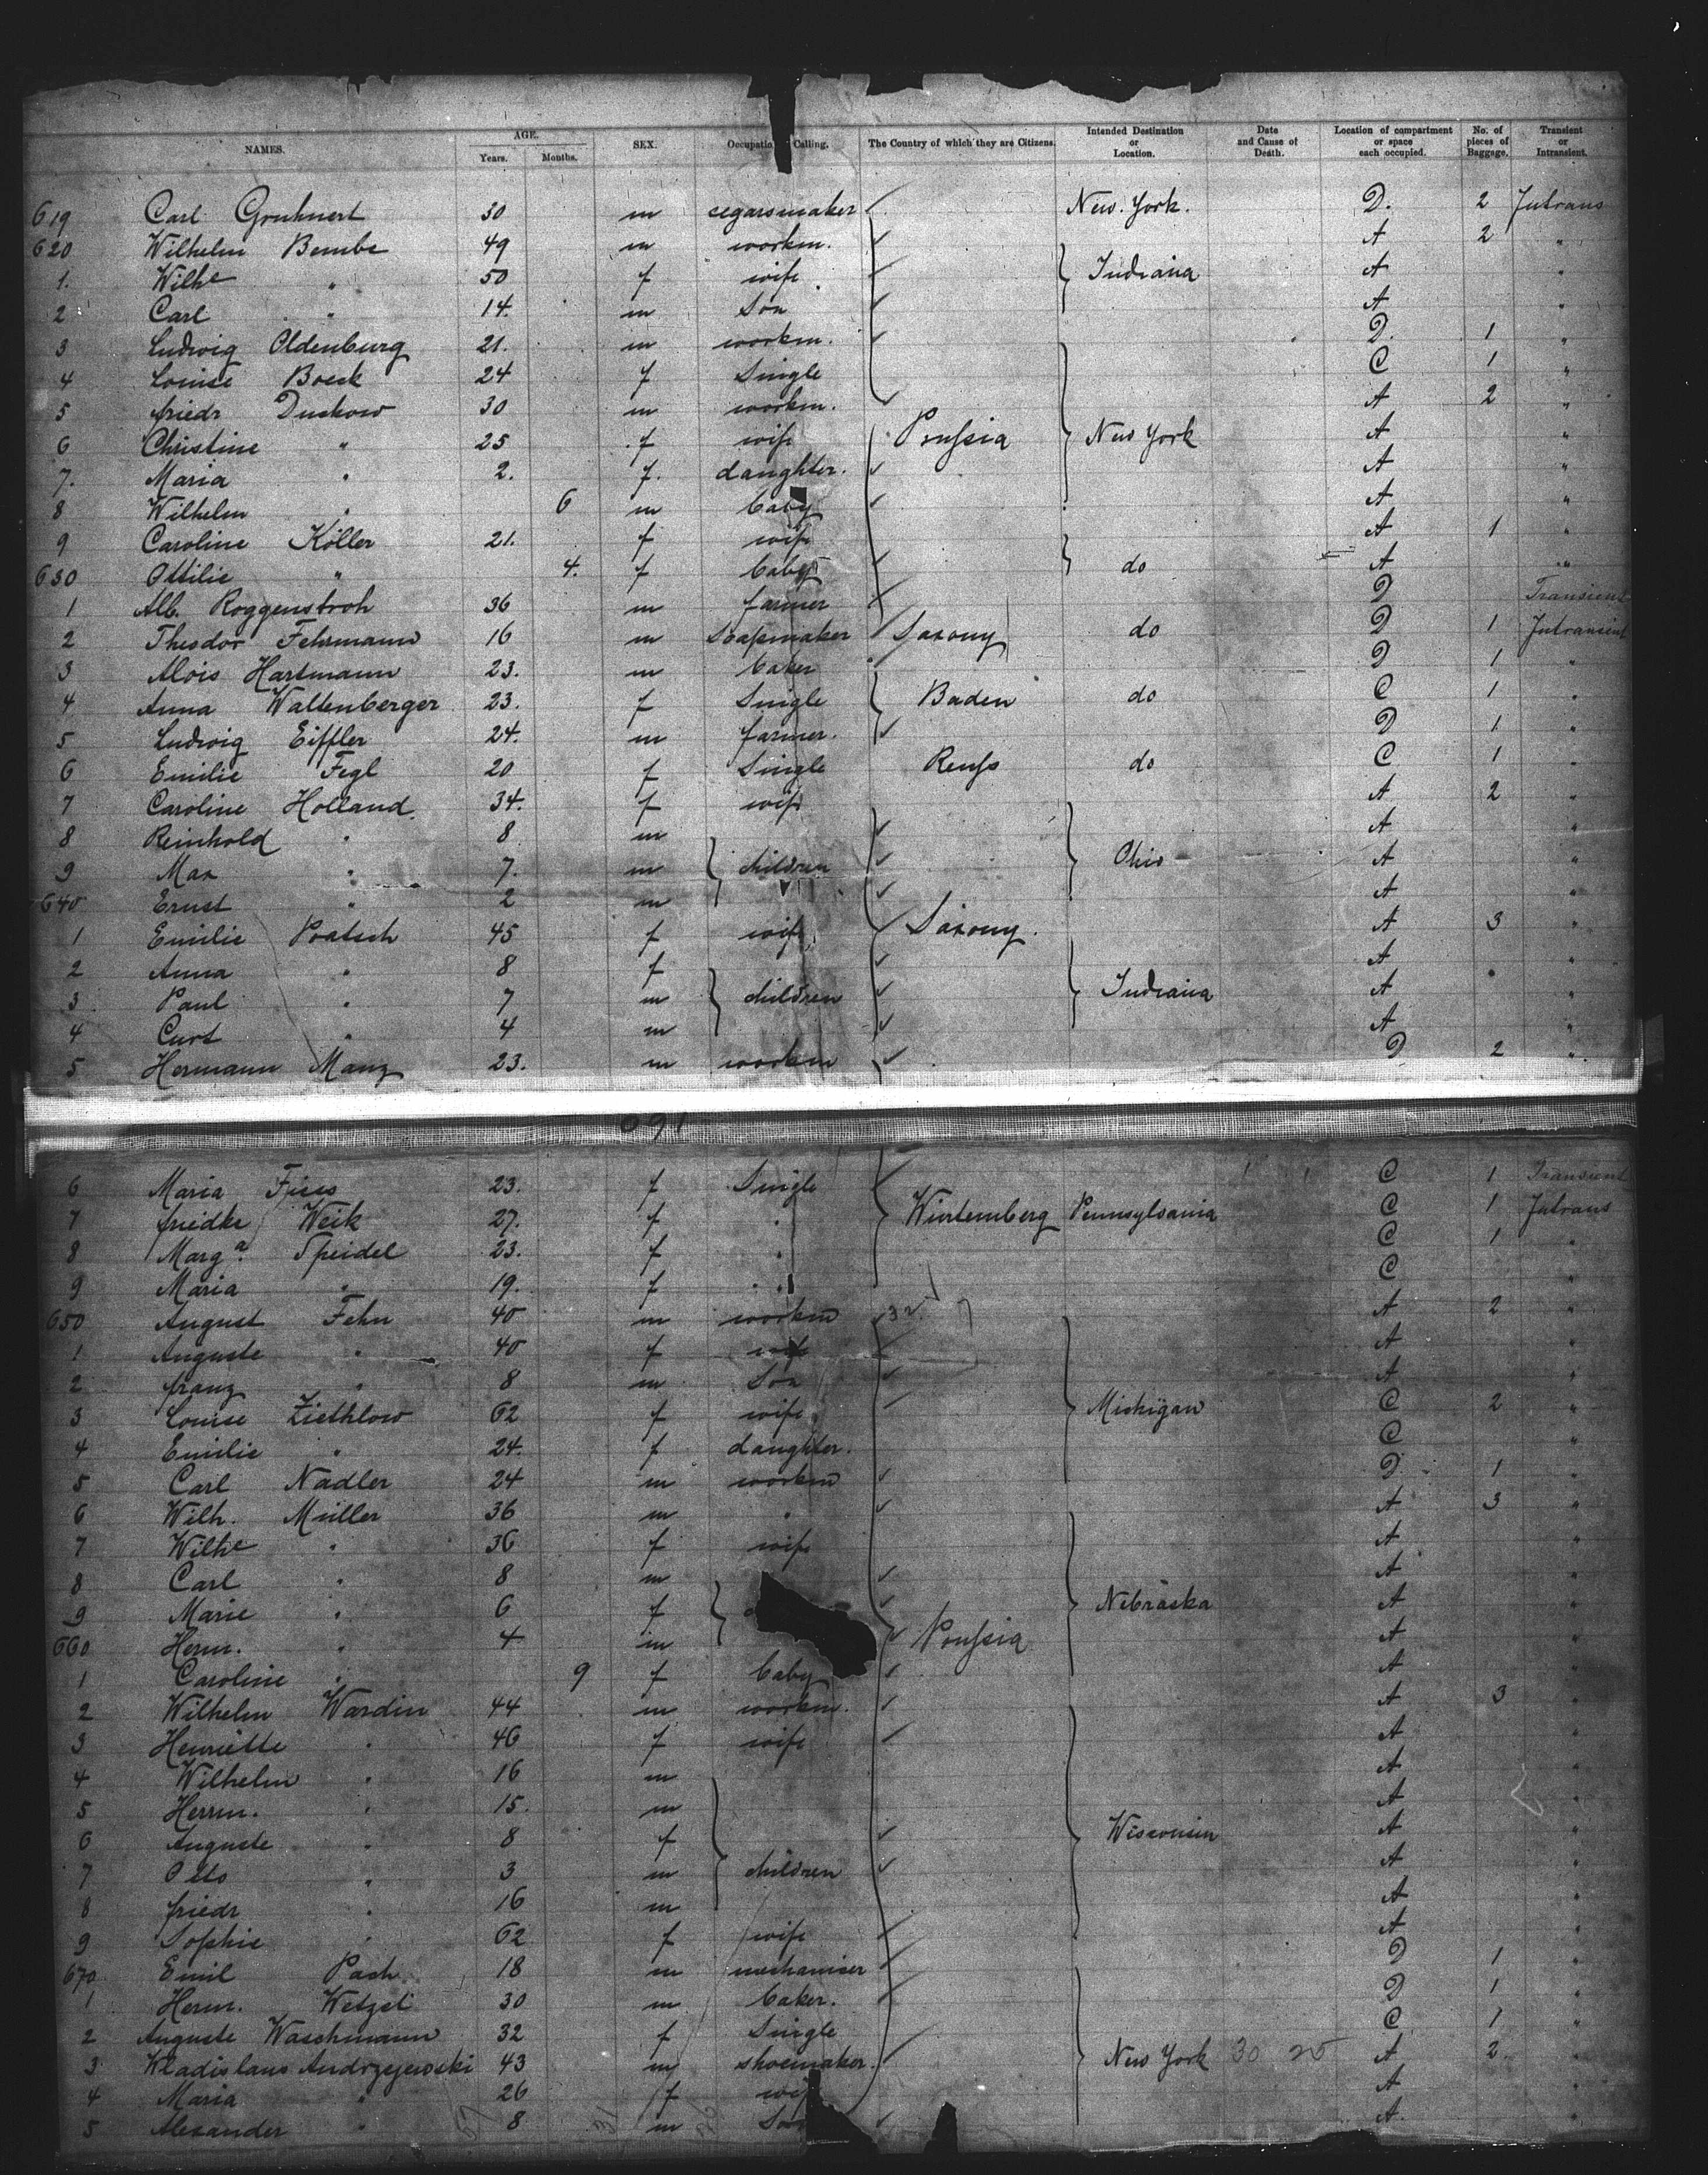 NAMES. AGE. Years. Months. SEX. Occupatio Calling. The Country of which they are Citizens. Intended Destination or Location. Date and Cause of Death. Location of compartment or space each occupied. No. of pieces of Baggage. Transient or Intransient.
619 Carl Gruhnert 30 m cegarsmaker New York. D. 2 Intrans
620 Wilhelm Bembe 49 m workm. A 2 "
1. Wilhe " 50 f wife Indiana A "
2 Carl " 14 m Son A "
3 Ludwig Oldenburg 21. m workm. D. 1 "
4 Louise Boeck 24 f Single C 1 "
5 friedr Duskow 30 m workm. A 2 "
6 Christine " 25 f wife Prussia New York A "
7. Maria " 2. f. daughter. A "
8 Wilhelm " 6 m baby A "
9 Caroline Köller 21. f wife A 1 "
630 Ottilie " 4. f baby do A "
1 Alb. Roggenstroh 36 m farmer D Transient
2 Theodor Fehrmann 16 m Soapmaker Saxony do D 1 Intransient
3 Alois Hartmann 23. m baker D 1 "
4 Anna Waltenberger 23. f Single Baden do C 1 "
5 Ludwig Eiffler 24. m farmer. D 1 "
6 Emilie Fegl 20 f Single Reuss do C 1 "
7 Caroline Holland 34. f wife A 2 "
8 Reinhold " 8 m A "
9 Max " 7. m children Ohio A "
640 Ernst " 2 m A "
1 Emilie Poatsch 45 f wife Saxony. A 3 "
2 Anna " 8 f A "
3 Paul " 7 m children Indiana A "
4 Curt " 4 m A "
5 Hermann Manz 23. m workm D 2 "
6 Maria 23. f Single C 1 Transient
7 friedke Weik 27. f " Würtemberg Pennsylvania C 1 Intrans
8 Marga Speidel 23. f " C 1 "
9 Maria " 19. f " C "
650 August Fehn 40 m workm A 2 "
1 Auguste " 40 f wife A "
2 franz " 8 m Son A "
3 Louise Ziethlow 62 f wife Michigan C 2 "
4 Emilie " 24. f daughter. C "
5 Carl Nadler 24 m workm D 1 "
6 Wilh. Müller 36 m " A 3 "
7 Wilhe " 36 f wife A "
8 Carl " 8 m A "
9 Marie " 6 f Nebraska A "
660 Herm. " 4 m Prussia A "
1 Caroline " 9 f baby A "
2 Wilhelm Wardin 44 m workm. A 3 "
3 Henriette " 46 f wife A "
4 Wilhelm " 16 m A "
5 Herrm. " 15. m A "
6 Auguste " 8 f Wisconsin A "
7 Otto " 3 m children A "
8 friedr " 16 m A "
9 Sophie " 62 f wife A "
670 Emil Pach 18 m mechaniser D 1 "
1 Herm. Wetzel 30 m baker. D 1 "
2 Auguste Waschmann 32 f Single C 1 "
3 Wladislaus Andrzejewski 43 m shoemaker. New York 30 25 A 2 "
4 Maria " 26 f wife A "
5 Alexander " 8 m Son A "